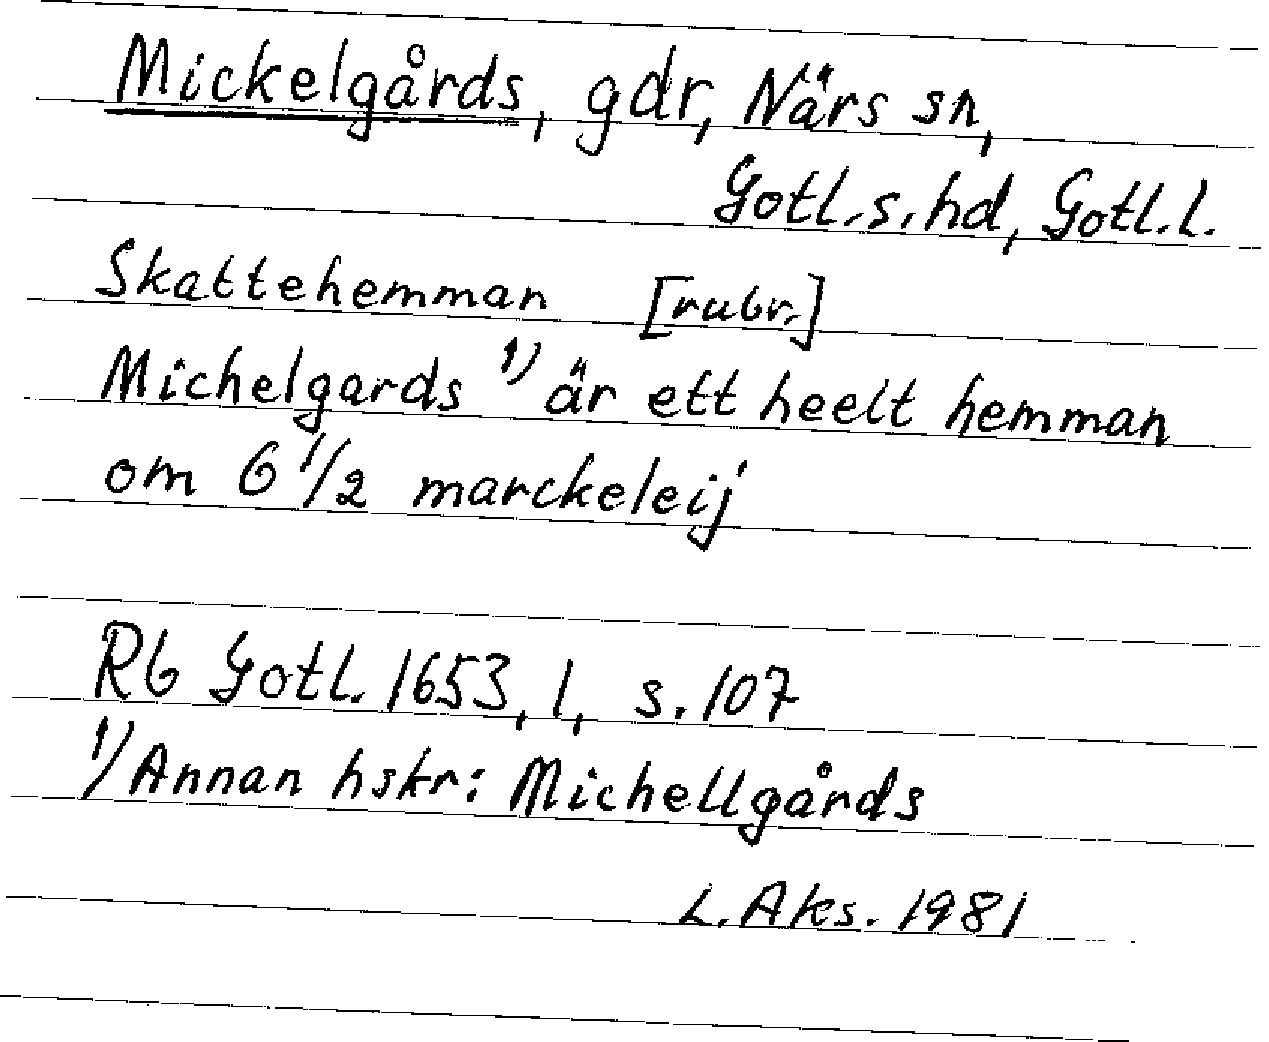 Mickelgårds, gdr, Närs sn,
Gotl.s.hd, Gotl.l.
Skattehemman [rubr.]
Michelgards 1) är ett heelt hemman
om 6 1/2 marckeleij
Rb Gotl. 1653, 1, s. 107
1) Annan hskr: Michellgårds
L. Aks. 1981